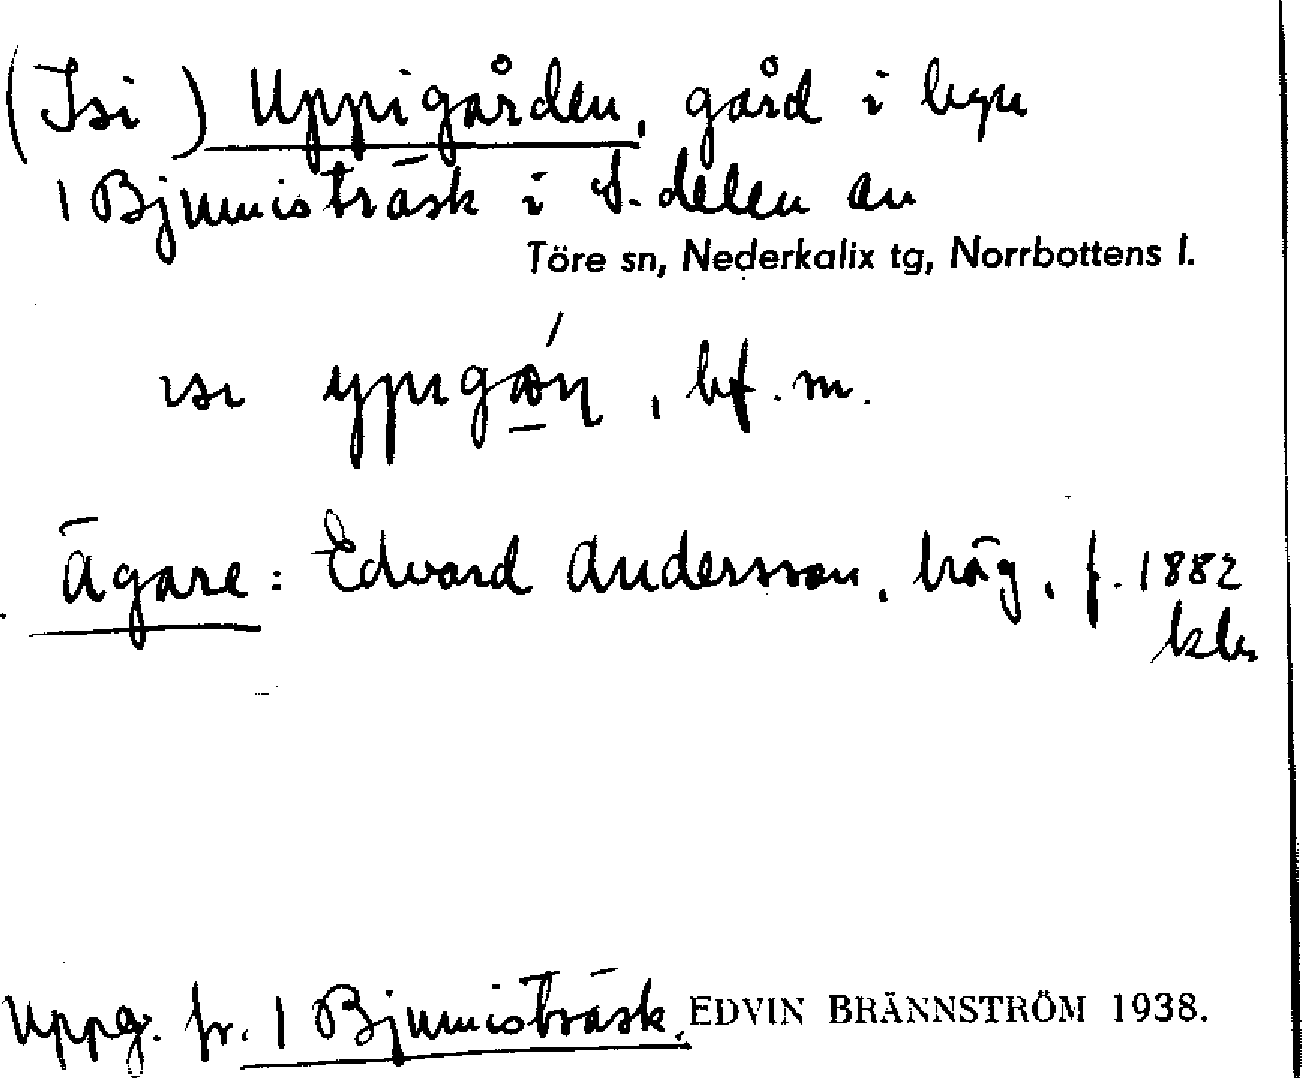 (Isi) Uppigården, gård i byn
1 Bjumisträsk i S. delen av
Töre sn, Nederkalix tg, Norrbottens l.
ısı , bf. m.
Ägare: Edvard Andersson, , f. 1882
Uppg. fr. 1 Bjumisträsk. EDVIN BRÄNNSTRÖM 1938.